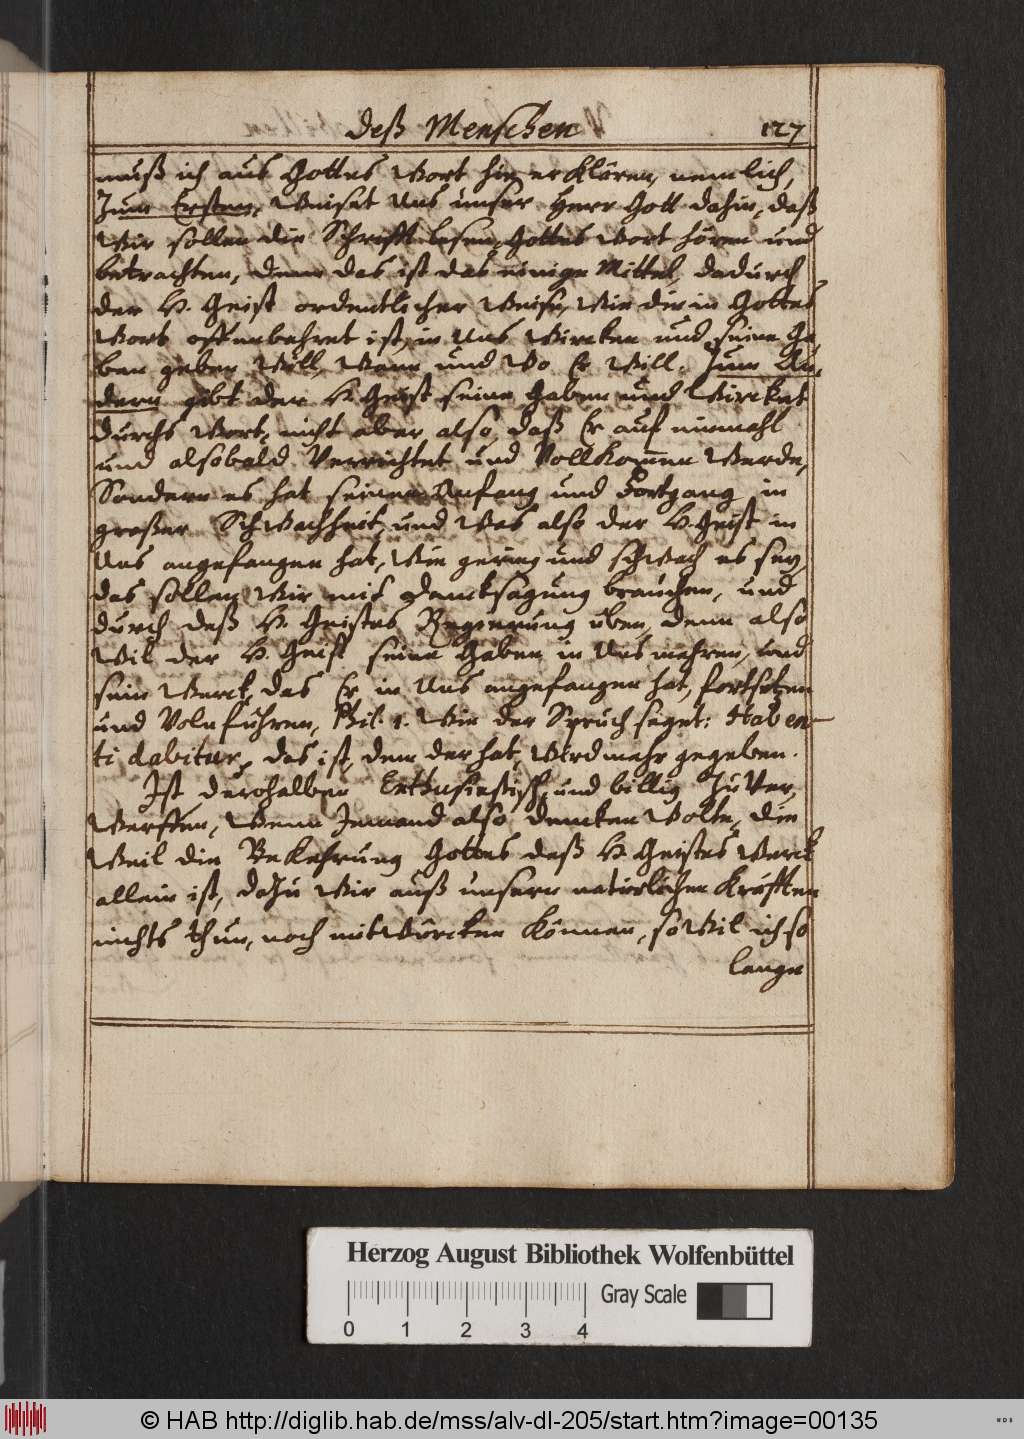 deß Menschen 127
muß ich aus Gottes Wort hie erklären, nemlich,
Zum Ersten, Weiset Uns unser Herr Gott dahin, daß
Wir sollen die Schrifft lesen, Gottes Wort hören und
betrachten, denn das ist das einige Mittel, dadurch
der H. Geist ordentlicher Weise, Wie die in Gottes
Wort offenbahret ist, in Uns Wircken und seine Ga,
ben geben Will, Wenn und Wo Er Will. Zum An,
dern gibt der H. Geist seine Gaben und Wircket
durchs Wort, nicht aber also, daß Er auf einmahl
und alsobald Verrichtet und Vollkom̄en Werde,
Sondern es hat seinen Anfang und Fortgang in
großer Schwachheit, und Was also der H. Geist in
Uns angefangen hat, Wie gering und schwach es sey,
das sollen Wir mit Dancksagung brauchen, und
durch deß H. Geistes Regierung üben, denn also
Wil der H. Geist seine Gaben in Uns mehren, und
sein Werck, das Er in Uns angefangen hat, fortsetzen
und Volnführen, Phil. 1. Wie der Spruch saget: Haben
ti dabitur, das ist, dem der hat, Wird mehr gegeben.
Ist derohalben Enthusiastisch, und billig zu Ver,
Werffen, Wenn Jemand also dencken Wolte, die
Weil die Bekehrung Gottes deß H. Geistes Werck
allein ist, dazu Wir auß unsern natürlichen Kräfften
nichts thun, noch mitWürcken können, so Wil ich so
lange
Herzog August Bibliothek Wolfenbüttel
Gray Scale
0 1 2 3 4
© HAB http://diglib.hab.de/mss/alv-dl-205/start.htm?image=00135
WDB